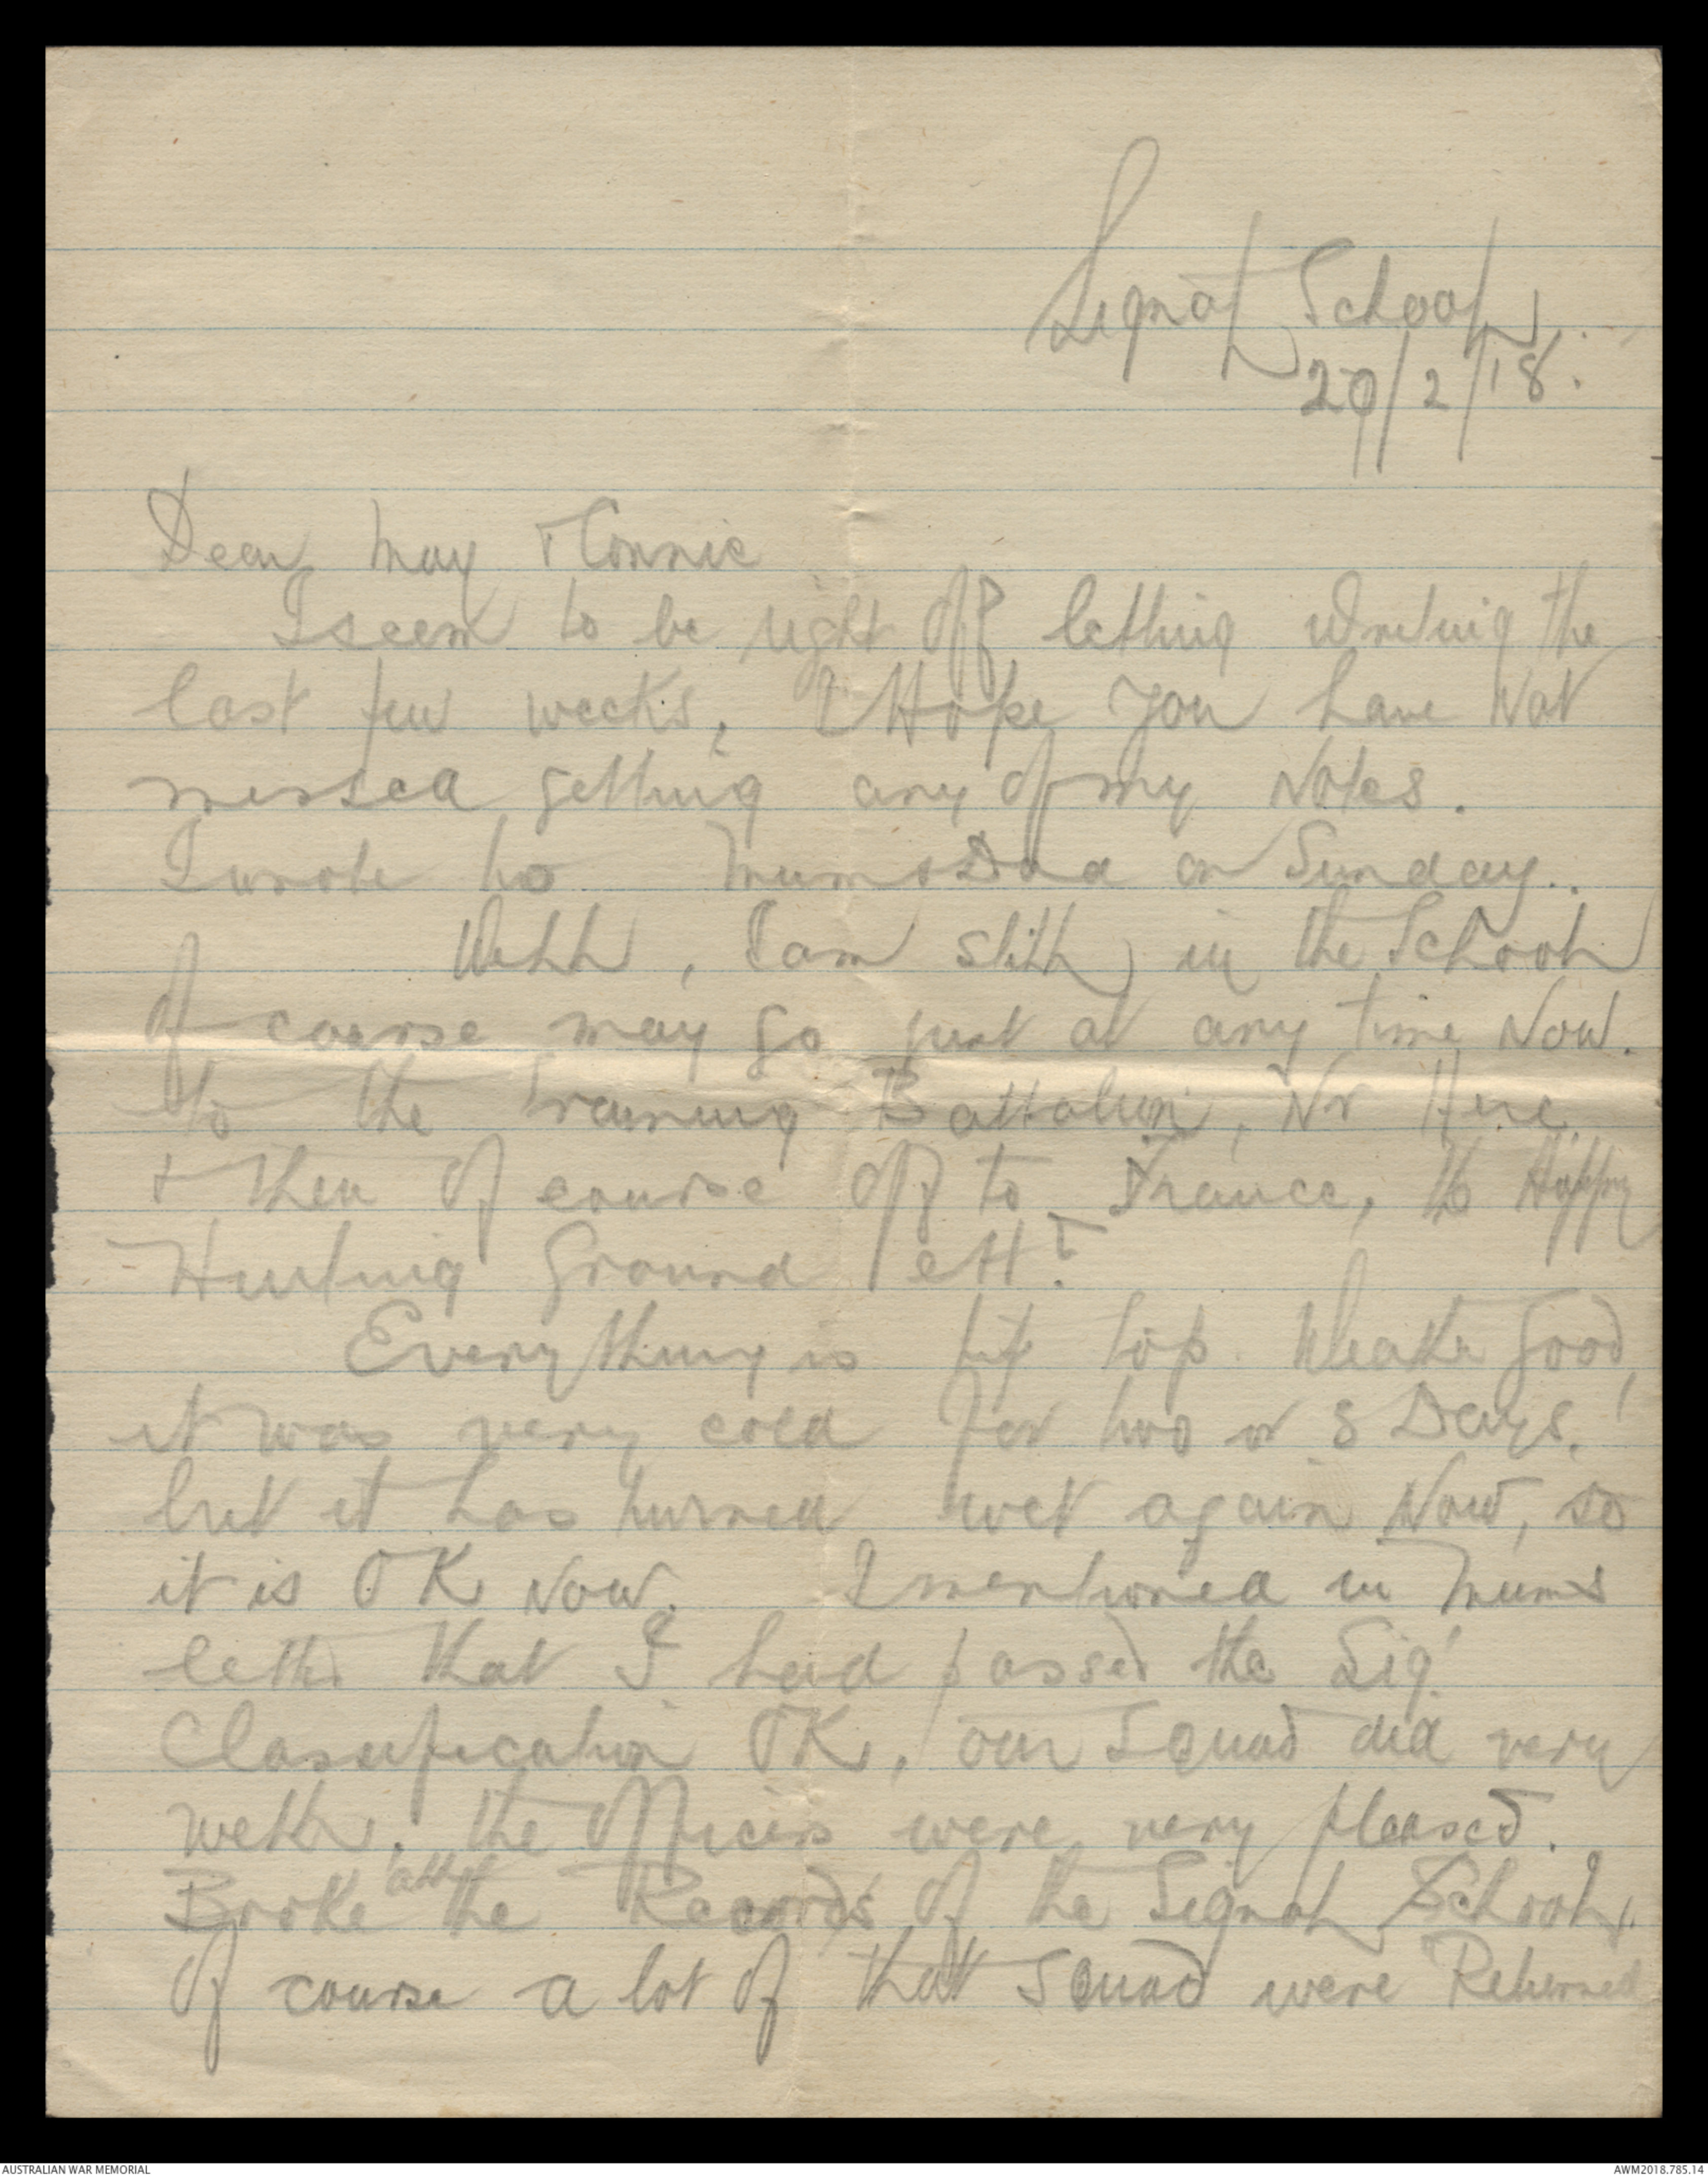 Signal School,
20/2/18.
Dear May & Connie
I seem to be right off letting writing the
last few weeks, I Hope you have Not
missed getting any of my Notes.
I wrote to Mum & Dad on Sunday..
Well, I am still in the School
of course may go just at any time Now.
to the Training Battalion, Nr Here
& then of course off to France, the Happy
Hunting Ground eh?
Everything is tip top. Weather Good,
it was very cold for two or 3 Days,
but it has turned wet again Now, so
it is OK Now. I mentioned in Mums
letter that I had passed the Sig.
Classification OK, our Squad did very
well. the Officers were very pleased.
Broke all the Records of the Signal School,
of course a lot of that Squad were Returned
AUSTRALIAN WAR MEMORIAL
AWM2018.785.14